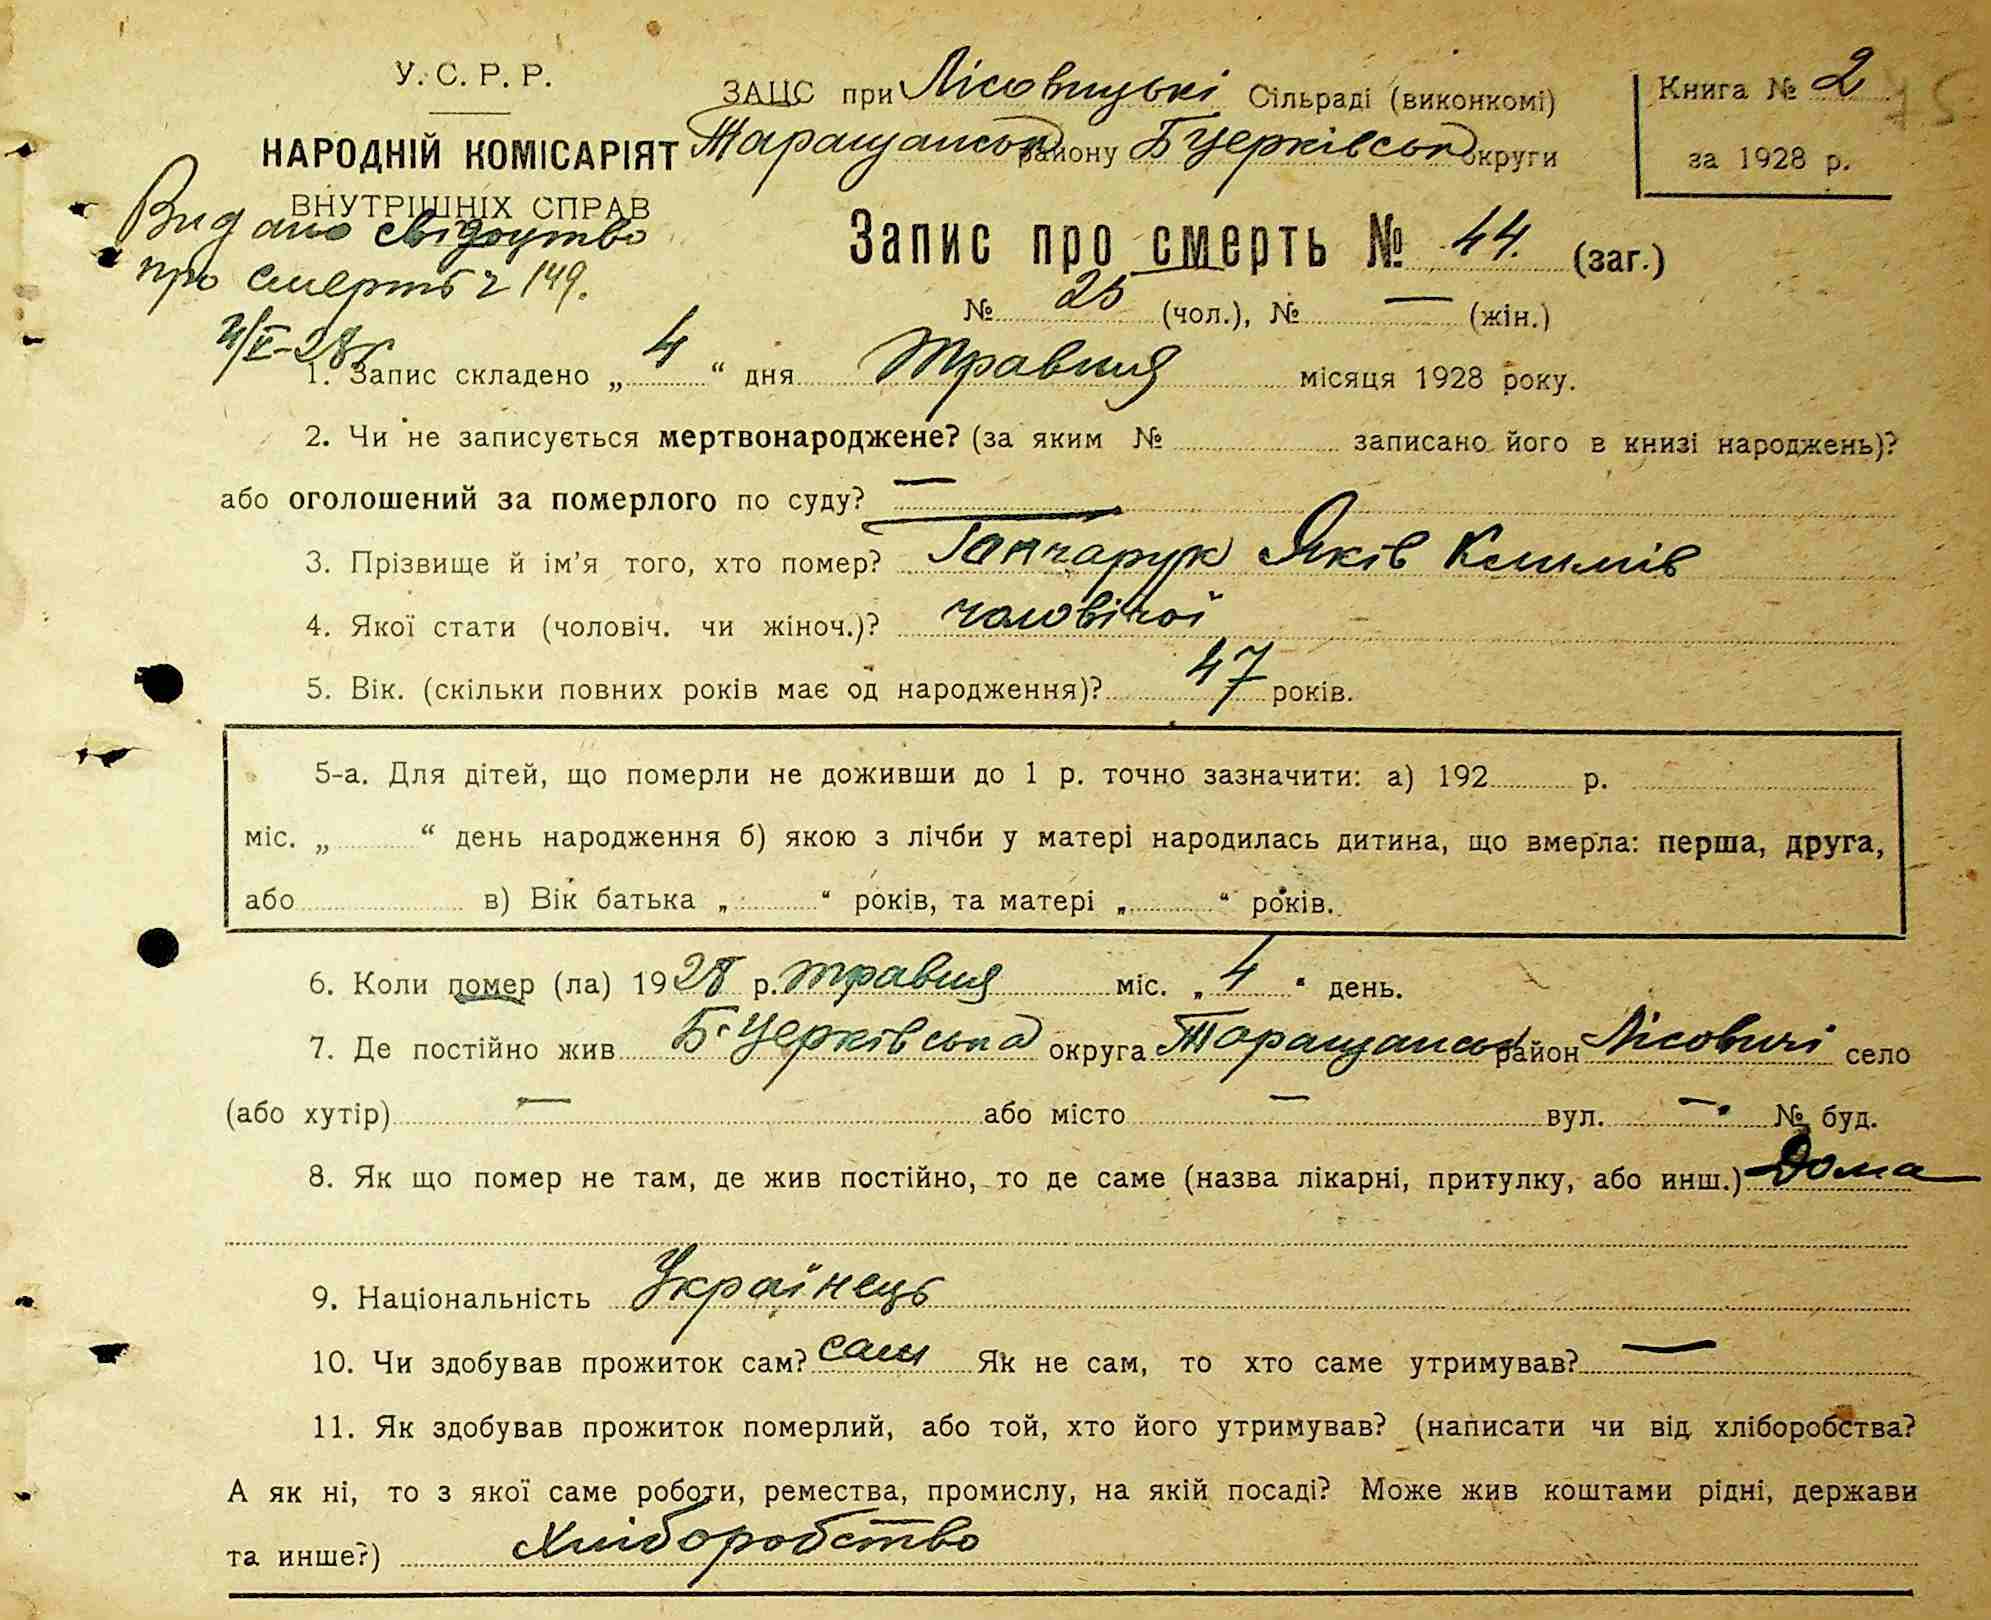 У.С.Р.Р.
НАРОДНІЙ КОМІСАРІЯТ
ВНУТРІШНІХ СПРАВ
Видано свідоцтво
про смерть ч 149.
4/V-28р
ЗАЦС при Лісовицькі Сільраді (виконкомі)
Таращанськ району Б Церківськ округи
Книга № 2
за 1928 р.
Запис про смерть № 44. (заг.)
№ 25 (чол.), № — (жін.)
1. Запис складено „ 4 “ дня травня місяця 1928 року.
2. Чи не записується мертвонароджене? (за яким № записано його в книзі народжень)?
або оголошений за померлого по суду? —
3. Прізвище й ім'я того, хто помер? Гончарук Яків Климів
4. Якої стати (чоловіч. чи жіноч.)? чоловічої
5. Вік. (скільки повних років має од народження)? 47 років.
5-а. Для дітей, що померли не доживши до 1 р. точно зазначити: а) 192 р.
міс. „ “ день народження б) якою з лічби у матері народилась дитина, що вмерла: перша, друга,
або в) Вік батька „ “ років, та матері „ “ років.
6. Коли помер (ла) 1928 р. травня міс. „ 4 “ день.
7. Де постійно жив Б. Церківська округа Таращанськ район Лісовичі село
(або хутір) — або місто — вул. — № буд.
8. Як що помер не там, де жив постійно, то де саме (назва лікарні, притулку, або инш.) Дома
9. Національність Українець
10. Чи здобував прожиток сам? сам Як не сам, то хто саме утримував? —
11. Як здобував прожиток померлий, або той, хто його утримував? (написати чи від хліборобства?
А як ні, то з якої саме роботи, ремества, промислу, на якій посаді? Може жив коштами рідні, держави
та инше?) Хліборобство